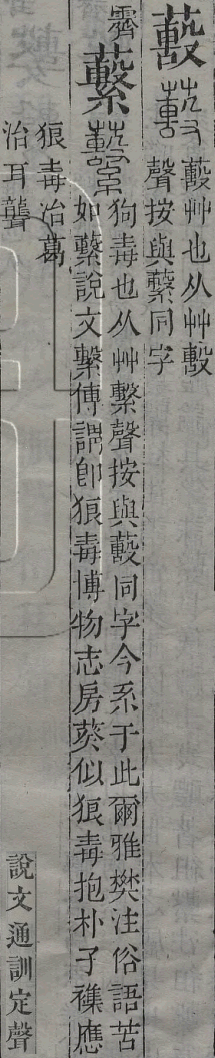 艸也从艸毄
聲按與蘻同字
霽
蘻
狗毒也从艸繫聲按與同字今系于此爾雅樊注俗語苦
如蘻說文繫傳謂卽狼毒博物志房葵似狼毒抱朴子襍應
狼毒冶葛
治耳聾
說文通訓定聲